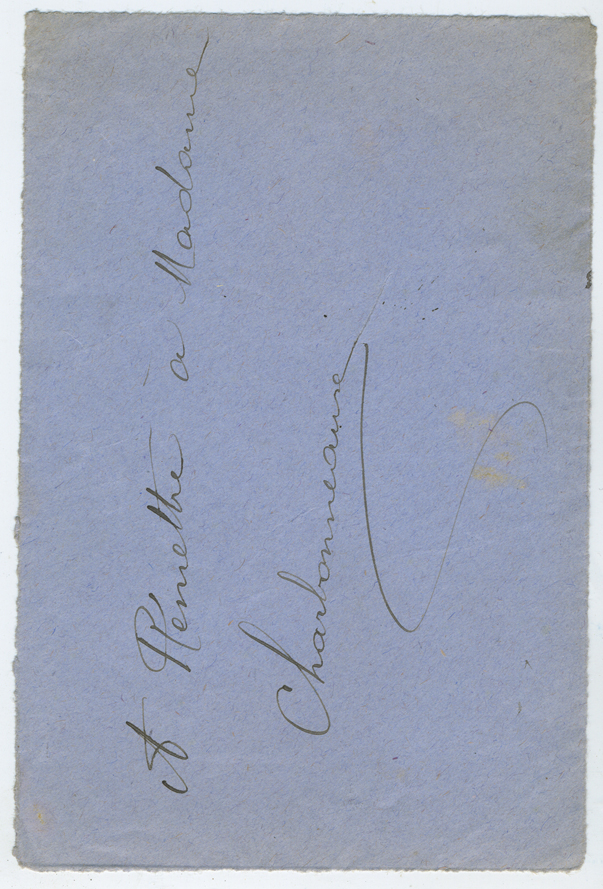 A Remettre à Madame
Charbonneaux